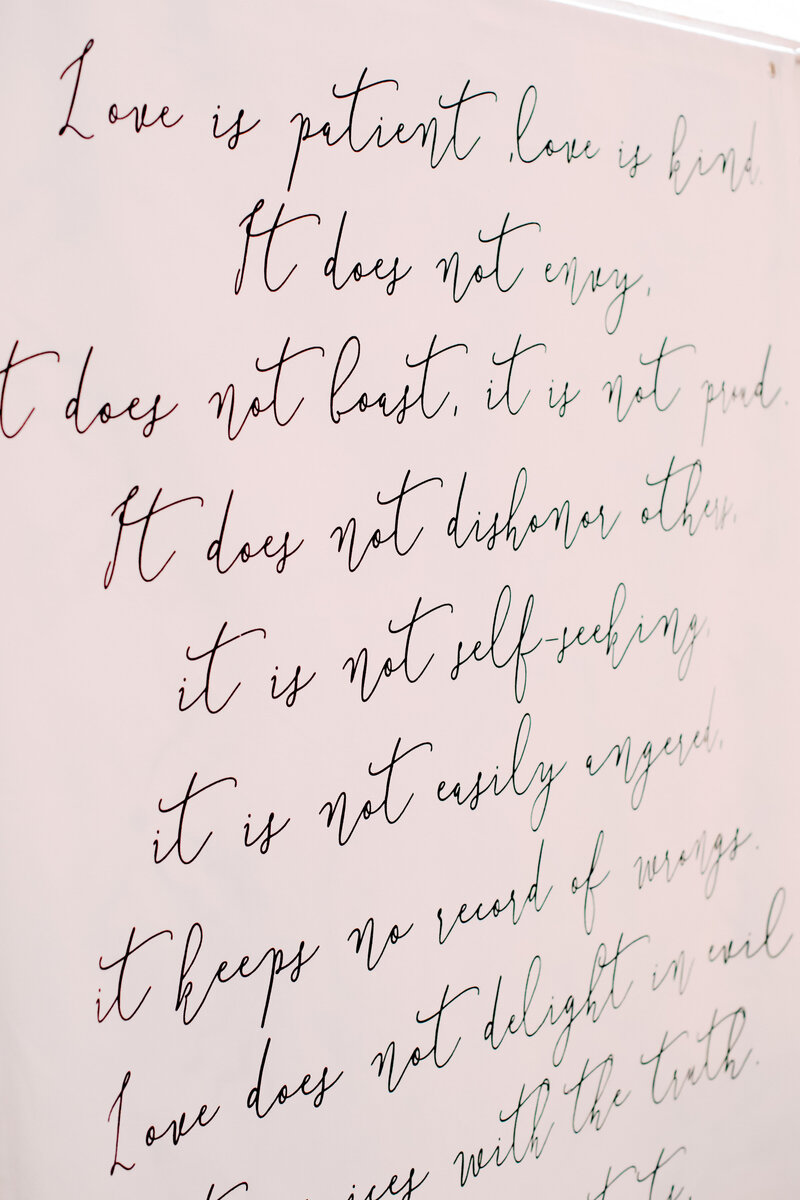 Love is patient, love is kind.
It does not envy,
t does not boast, it is not proud.
It does not dishonor others,
it is not self-seeking,
it is not easily angered,
it keeps no record of wrongs.
Love does not delight in evil
with the truth.